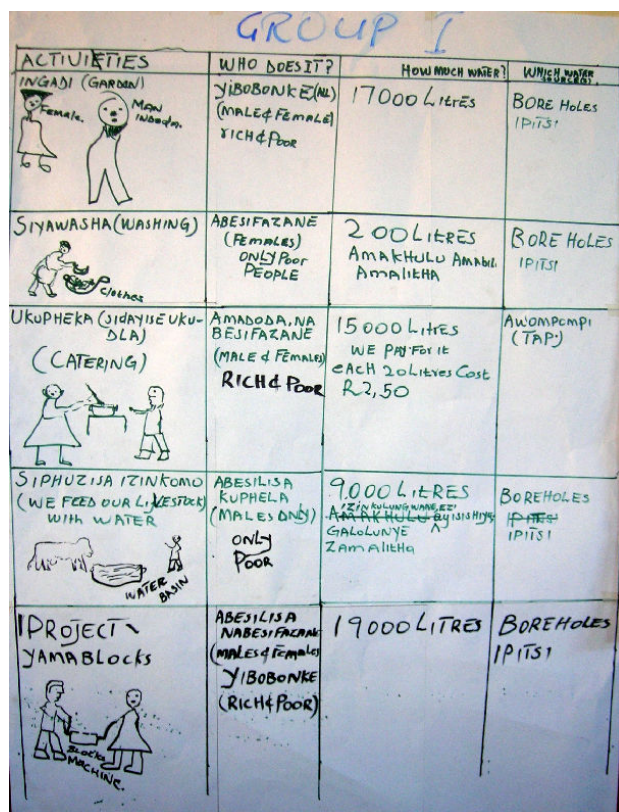 GROUP I
ACTIVIETIES
WHO DOES IT?
HOW MUCH WATER?
WHICH WATER
INGADI (GARDEN)
Female.
MAN
INDODA.
YIBOBONKE (ALL)
(MALE & FEMALE)
RICH & POOR
17000 LITRES
BORE HOLES
IPITSI
SIYAWASHA (WASHING)
Clothes
ABESIFAZANE
(FEMALES)
ONLY POOR
PEOPLE
200 LITRES
AMAKHULU AMABILI
AMALITHA
BORE HOLES
IPITSI
UKUPHEKA (SIDAYISE UKU-
DLA)
(CATERING)
AMADODA, NA
BESIFAZANE
(MALE & FEMALES)
RICH & POOR
15000 LITRES
WE PAY FOR IT
EACH 20 LITRES COST
R2,50
AWOMPOMPI
(TAP)
SIPHUZISA IZINKOMO
(WE FEED OUR LIVESTOCK)
WITH WATER
WATER
BASIN
ABESILISA
KUPHELA
(MALES ONLY)
ONLY
POOR
9000 LITRES
IZINKULUNGWANE EZI
AMAKHULU AYISISHIYA
GALOLUNYE
ZAMALITHA
BOREHOLES
IPITSI
IPROJECT
YAMABLOCKS
BLOCKS
MACHINE.
ABESILISA
NABESIFAZANE
(MALES & FEMALES
YIBOBONKE
(RICH & POOR)
19000 LITRES
BOREHOLES
IPITSI